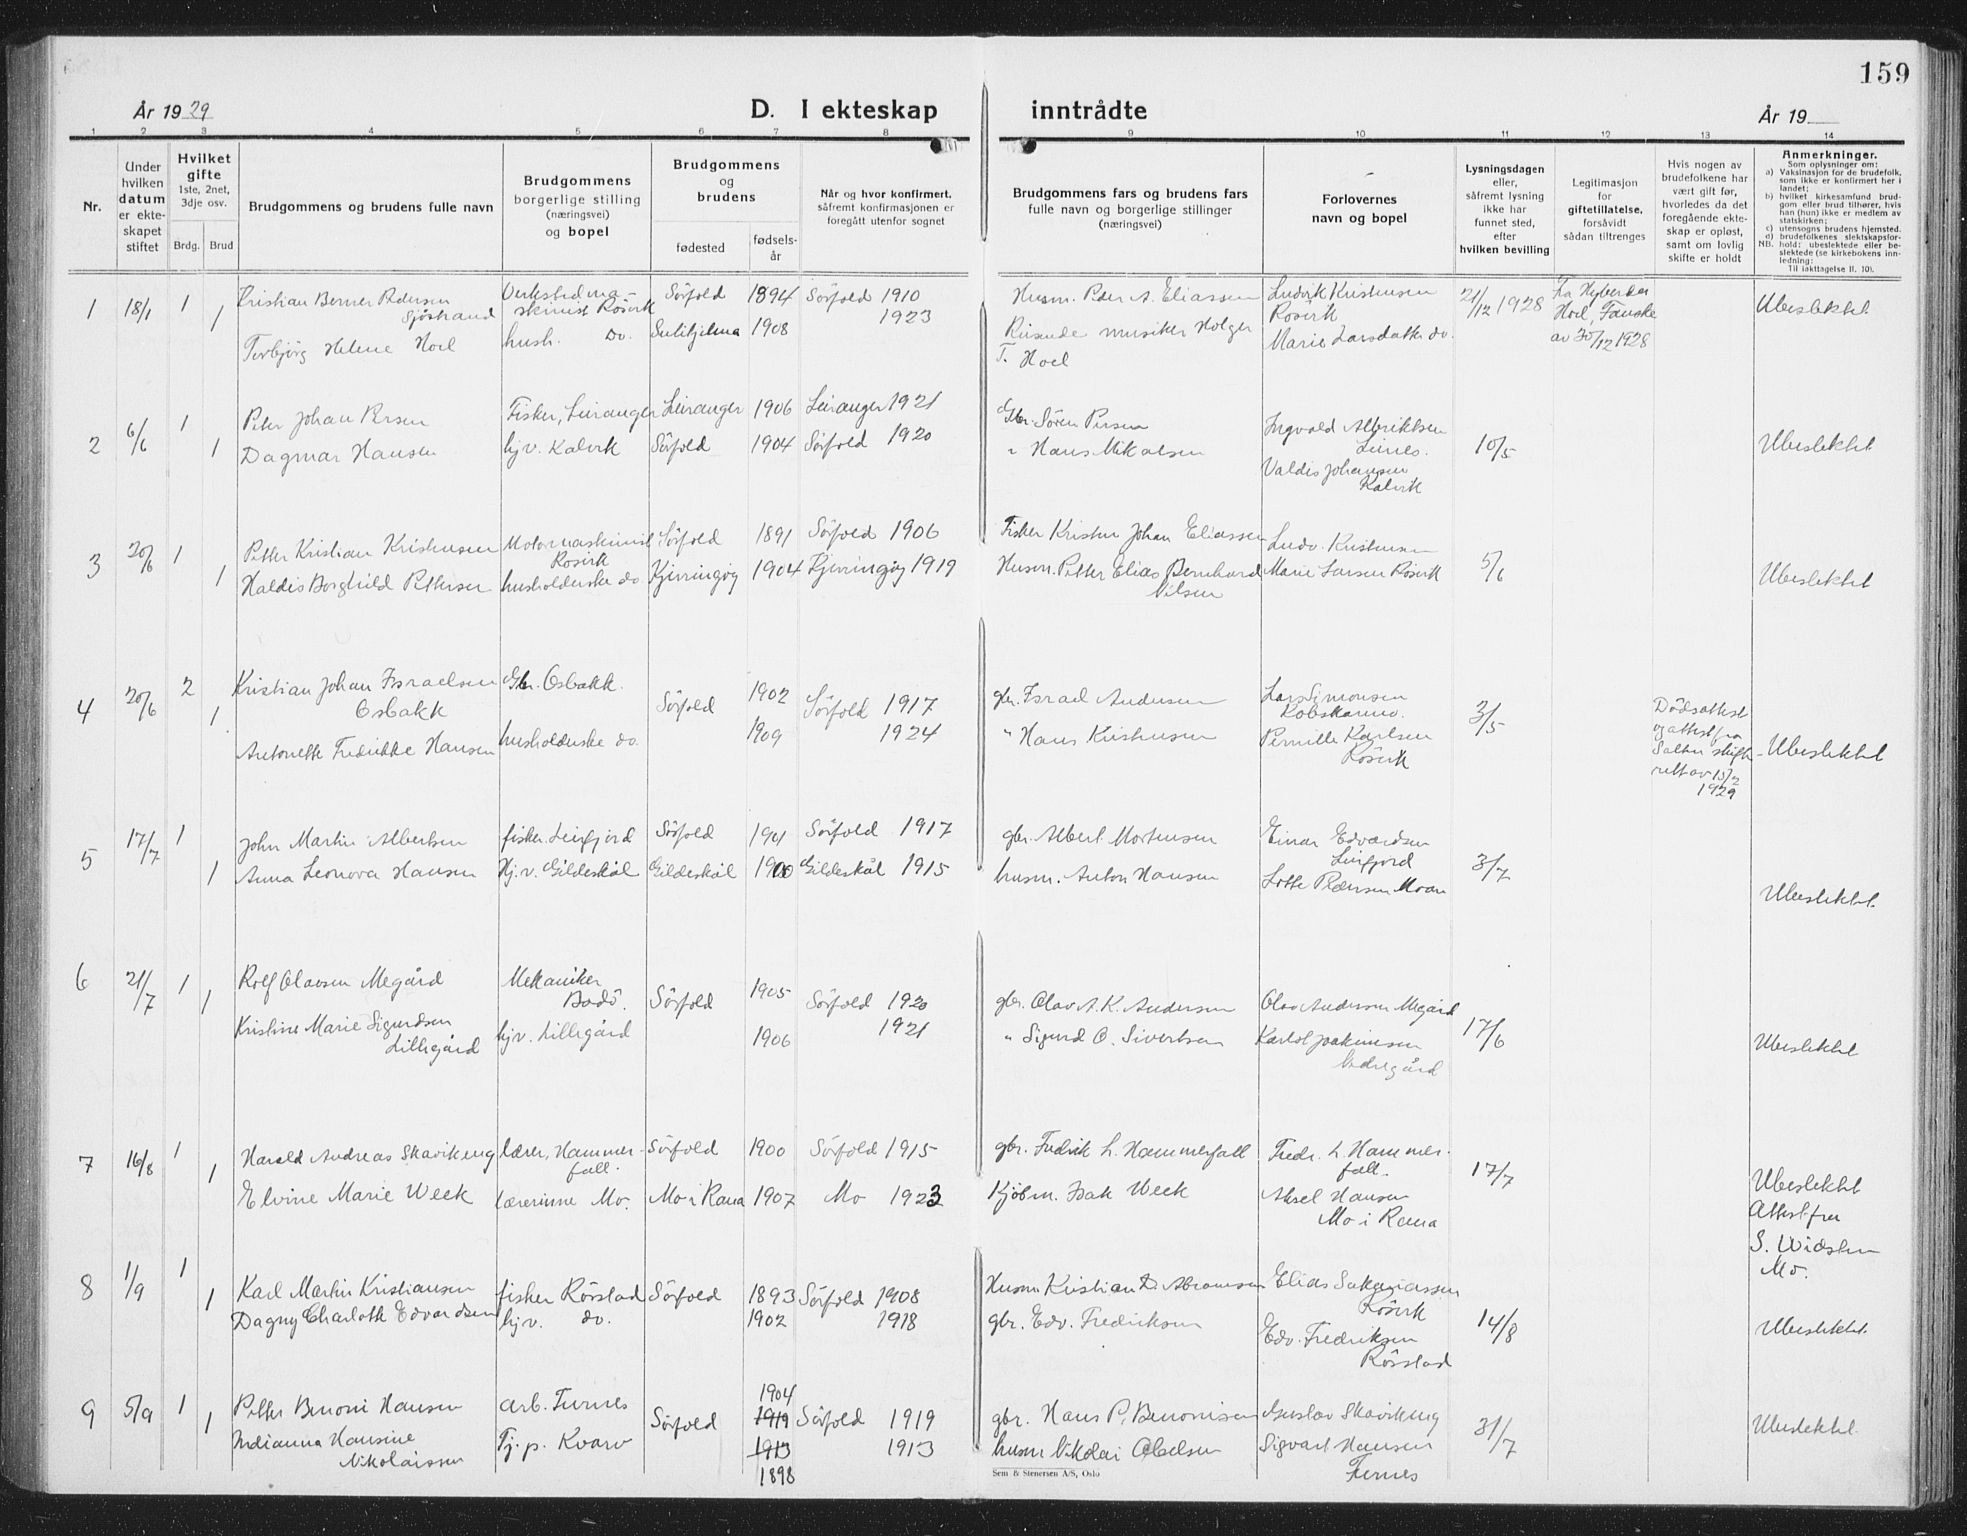 159
År 1929
D. I ekteskap inntrådte
År 19
1 2 3 4 5 6 7 8 9 10 11 12 13 14
Nr.
Under
hvilken
datum
er ekte-
skapet
stiftet
Hvilket
gifte
1ste, 2net,
3dje osv.
Brdg. Brud
Brudgommens og brudens fulle navn
Brudgommens
borgerlige stilling
(næringsvei)
og bopel
Brudgommens
og
brudens
fødested
fødsels-
år
Når og hvor konfirmert,
såfremt konfirmasjonen er
foregått utenfor sognet
Brudgommens fars og brudens fars
fulle navn og borgerlige stillinger
(næringsvei)
Forlovernes
navn og bopel
Lysningsdagen
eller,
såfremt lysning
ikke har
funnet sted,
efter
hvilken bevilling
Legitimasjon
for
giftetillatelse,
forsåvidt
sådan tiltrenges
Hvis nogen av
brudefolkene har
vært gift før,
hvorledes da det
foregående ekte-
skap er opløst,
samt om lovlig
skifte er holdt
Anmerkninger.
Som oplysninger om:
a) Vaksinasjon for de brudefolk,
som ikke er konfirmert her i
landet;
b) hvilket kirkesamfund brud-
gom eller brud tilhører, hvis
han (hun) ikke er medlem av
statskirken;
c) utensogns brudens hjemsted.
d) brudefolkenes slektskapsfor-
NB. hold: ubeslektede eller be-
slektede (se kirkebokens inn-
ledning:
Til iakttagelse II. 10).
1 18/1 1 Kristian Berner Pedersen
Sjöstrand
Verkstedma-
skinist Rösvik
Sörfold 1894 Sörfold 1910
Husm. Peder A. Eliassen
Ludvik Kristensen
Rösvik
21/12 1928
Fra Herber der
Hoel, Fauske
av 30/12 1928
Ubeslektet
1 Torbjörg Helene Hoel
hush. do.
Sulitjelma 1908 1923
Reisende musiker Holger
T. Hoel
Marie Larsdatter do.
2 6/6 1 Peter Johan Persen
Fisker, Leiranger Leiranger 1906 Leiranger 1921
Gbr. Sören Persen
Ingvald Albrektsen
Leines.
10/5
Ubeslektet
1 Dagmar Hansen
hjv. Kalvik Sörfold 1904 Sörfold 1920
" Hans Mikalsen
Valdis Johansen
Kalvik
3 20/6 1 Petter Kristian Kristensen
Motormaskinist
Rösvik
Sörfold 1891 Sörfold 1906
Fisker Kristen Johan Eliassen
Ludv. Kristensen
5/6
Ubeslektet
1 Haldis Borghild Pettersen
husholderske do. Kjerringöy 1904 Kjerringöy 1919
Husm. Petter Elias Bernhard
Nilsen
Marie Larsen Rösvik
4 20/6 2 Kristian Johan Israelsen
Osbakk
Gbr. Osbakk.
Sörfold 1902 Sörfold 1917
gbr. Israel Andersen
Lars Simonsen
Kobskarmo.
3/5
Dödsattest
og attest fra
Salten skifte-
rett av 15/2
1929
Ubeslektet
1 Antonette Fredrikke Hansen
husholderske do.
1909 1924
" Hans Kristensen
Pernille Karlsen
Rösvik
5 17/7 1 John Martin Albertsen
fisker Leirfjord Sörfold 1901 Sörfold 1917
gbr. Albert Mortensen
Einar Edvardsen
Leirfjord
3/7
Ubeslektet.
1 Anna Leonova Hansen
Hj.v. Gildeskål Gildeskål 1900 Gildeskål 1915
husm. Anton Hansen
Lotte Pedersen Moan
6 21/7 1 Rolf Olavsen Megård
Mekaniker
Bodö.
Sörfold 1905 Sörfold 1920
gbr. Olav A. K. Andersen
Olav Andersen Megård
17/6
Ubeslektet
1 Kristine Marie Sigurdsen
Lillegård
hjv. Lillegård
1906 1921
" Sigurd O. Sivertsen
Karlot Joakimsen
Nedregård
7 16/8 1 Harald Andreas Skavikeng
lærer, Hammer-
fall.
Sörfold 1900 Sörfold 1915
gbr. Fredrik L. Hammerfall
Fredr. L. Hammer-
fall.
17/7
Ubeslektet
Attest fra
S. Widsten
Mo.
1 Elvine Marie Week
lærerinne Mo. Mo i Rana 1907 Mo 1923
Kjöbm. Isak Week
Aksel Hansen
Mo i Rana
8 1/9 1 Karl Martin Kristiansen
fisker Rösstad Sörfold 1893 Sörfold 1908
Husm Kristian D. Abramsen
Elias Sakariassen
Rösvik
14/8
Ubeslektet.
1 Dagny Charlotte Edvardsen
hjv. do.
1902 1918
gbr. Edv. Fredriksen
Edv. Fredriksen
Rösstad
9 5/9 1 Petter Benoni Hansen
arb. Furnes
Sörfold 1904
1919 Sörfold 1919
gbr. Hans P. Benonisen
Gustav Skavikeng
31/7
Ubeslektet.
1 Indianna Hansine
Nikolaissen
Tj. p. Kvarv
1913 1913
1898
husm Nikolai Abelsen
Sigvart Hansen
Furnes
Sem & Stenersen A/S, Oslo